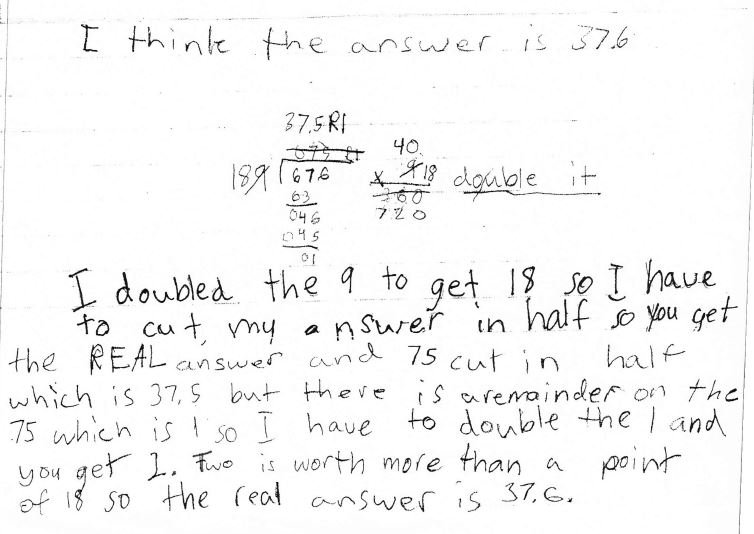 I think the answer is 37.6
37.5 R1
075 R1
40
189 676
x 9 18 double it
63
360
046
720
045
01
I doubled the 9 to get 18 so I have
to cut my answer in half so you get
the REAL answer and 75 cut in half
which is 37.5 but there is aremainder on the
75 which is 1 so I have to double the 1 and
you get 2. Two is worth more than a point
of 18 so the real answer is 37.6.